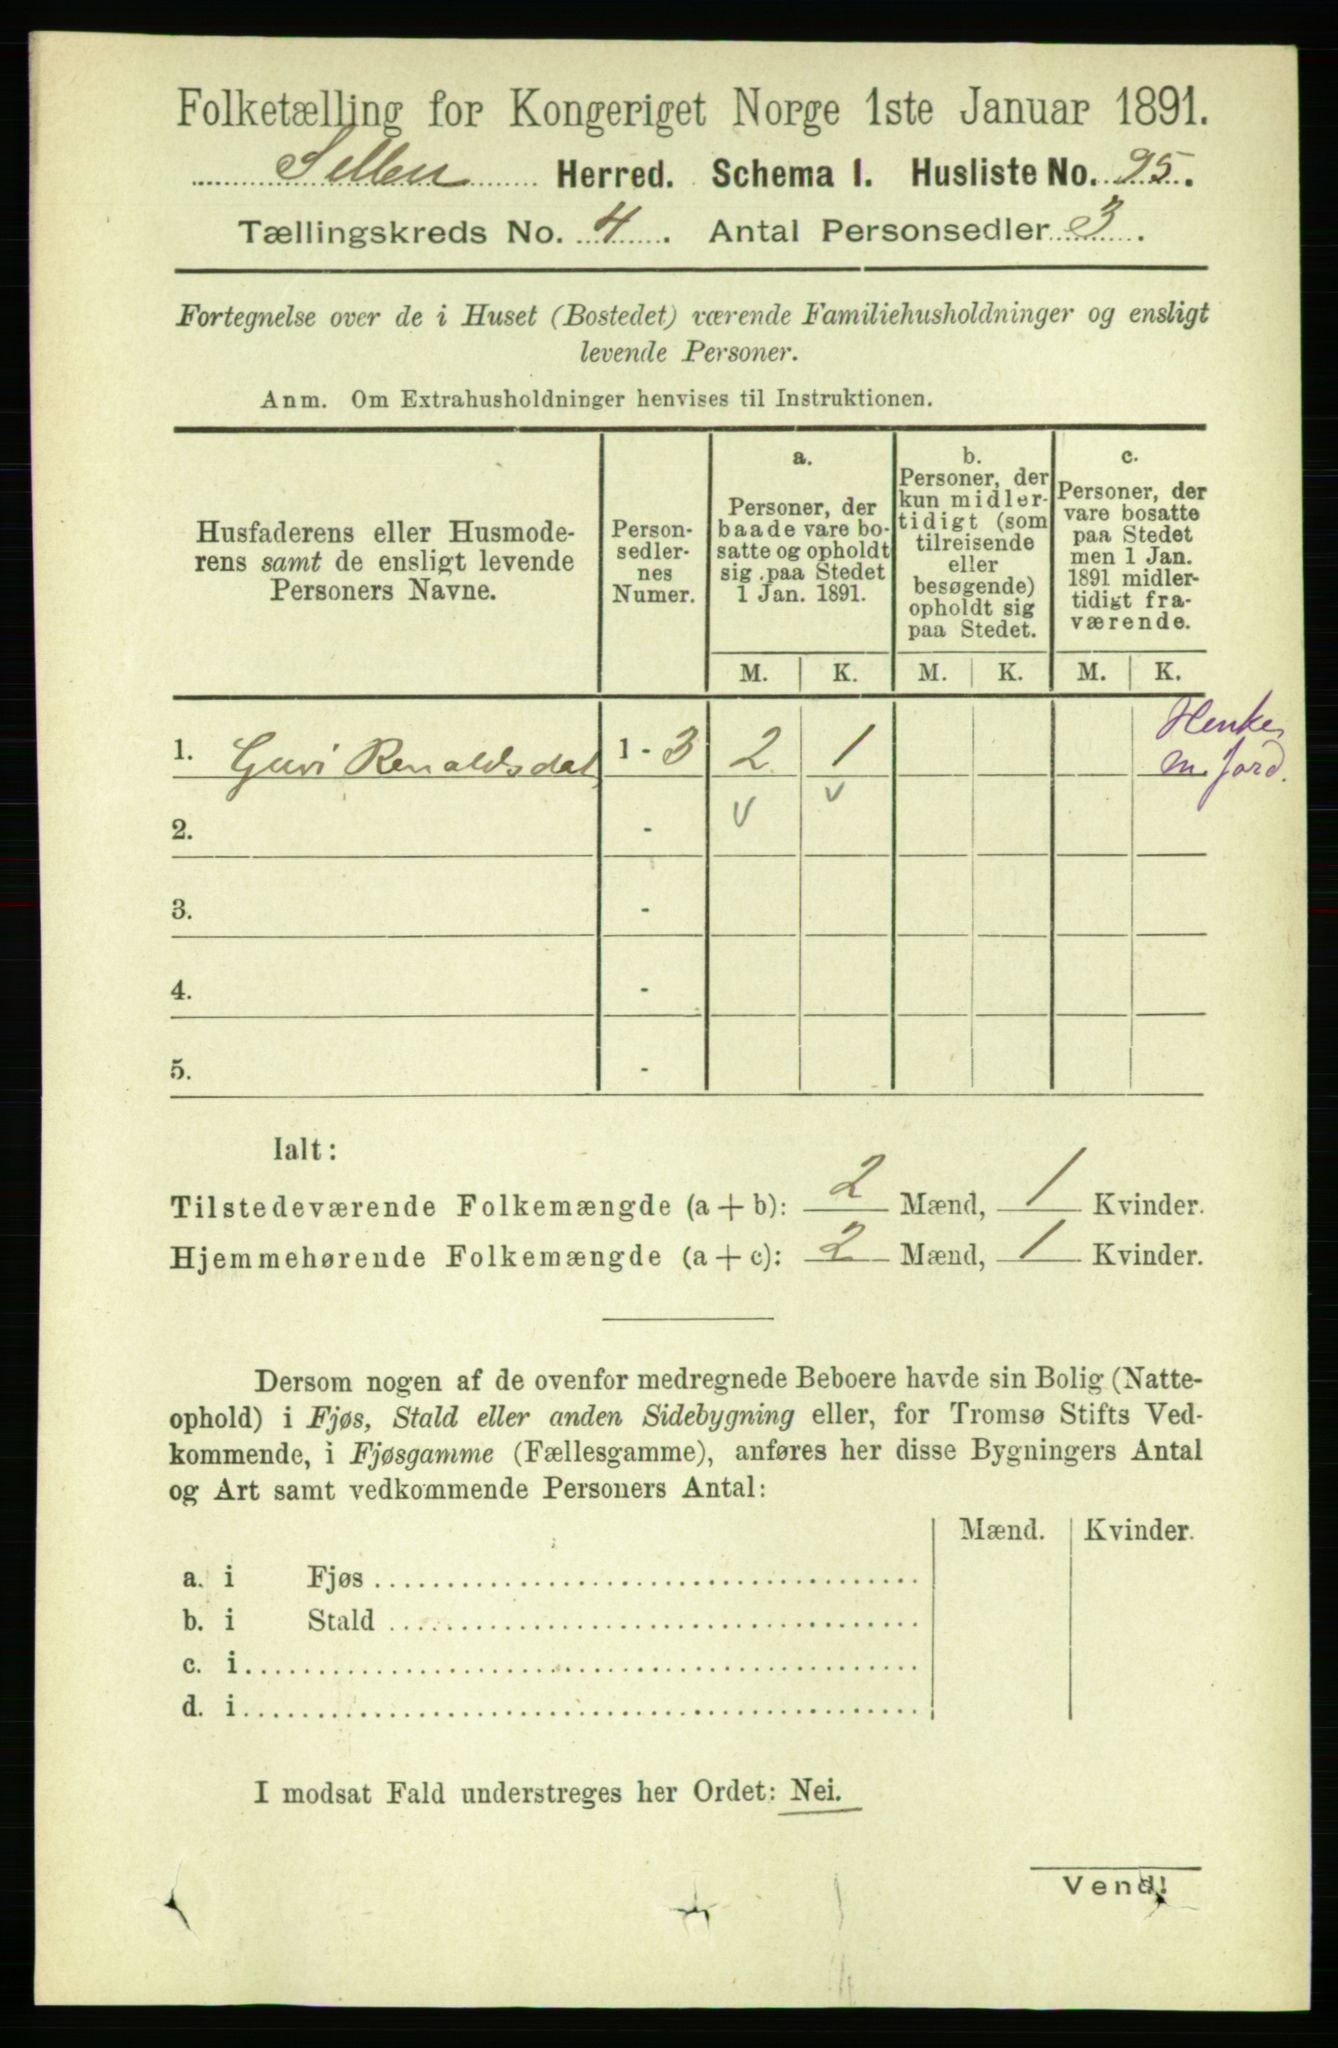 Folketælling for Kongeriget Norge 1ste Januar 1891.
Selbu Herred. Schema I. Husliste No. 95.
Tællingskreds No. 4. Antal Personsedler 3.
Fortegnelse over de i Huset (Bostedet) værende Familiehusholdninger og ensligt
levende Personer.
Anm. Om Extrahusholdninger henvises til Instruktionen.
Husfaderens eller Husmode-
rens samt de ensligt levende
Personers Navne.
Person-
sedler-
nes
Numer.
a.
Personer, der
baade vare bo-
satte og opholdt
sig paa Stedet
1 Jan. 1891.
b.
Personer, der
kun midler-
tidigt (som
tilreisende
eller
besøgende)
opholdt sig
paa Stedet.
c.
Personer, der
vare bosatte
paa Stedet
men 1 Jan.
1891 midler-
tidigt fra-
værende.
M. K. M. K. M. K.
1. Guri Renaldsdat 1 - 3 2 1
Henke
m. Jord.
2. - v v
3. -
4. -
5. -
Ialt:
Tilstedeværende Folkemængde (a + b): 2 Mænd, 1 Kvinder.
Hjemmehørende Folkemængde (a + c): 2 Mænd, 1 Kvinder.
Dersom nogen af de ovenfor medregnede Beboere havde sin Bolig (Natte-
ophold) i Fjøs, Stald eller anden Sidebygning eller, for Tromsø Stifts Ved-
kommende, i Fjøsgamme (Fællesgamme), anføres her disse Bygningers Antal
og Art samt vedkommende Personers Antal:
Mænd. Kvinder.
a. i Fjøs
b. i Stald
c. i
d. i
I modsat Fald understreges her Ordet: Nei.
Vend!